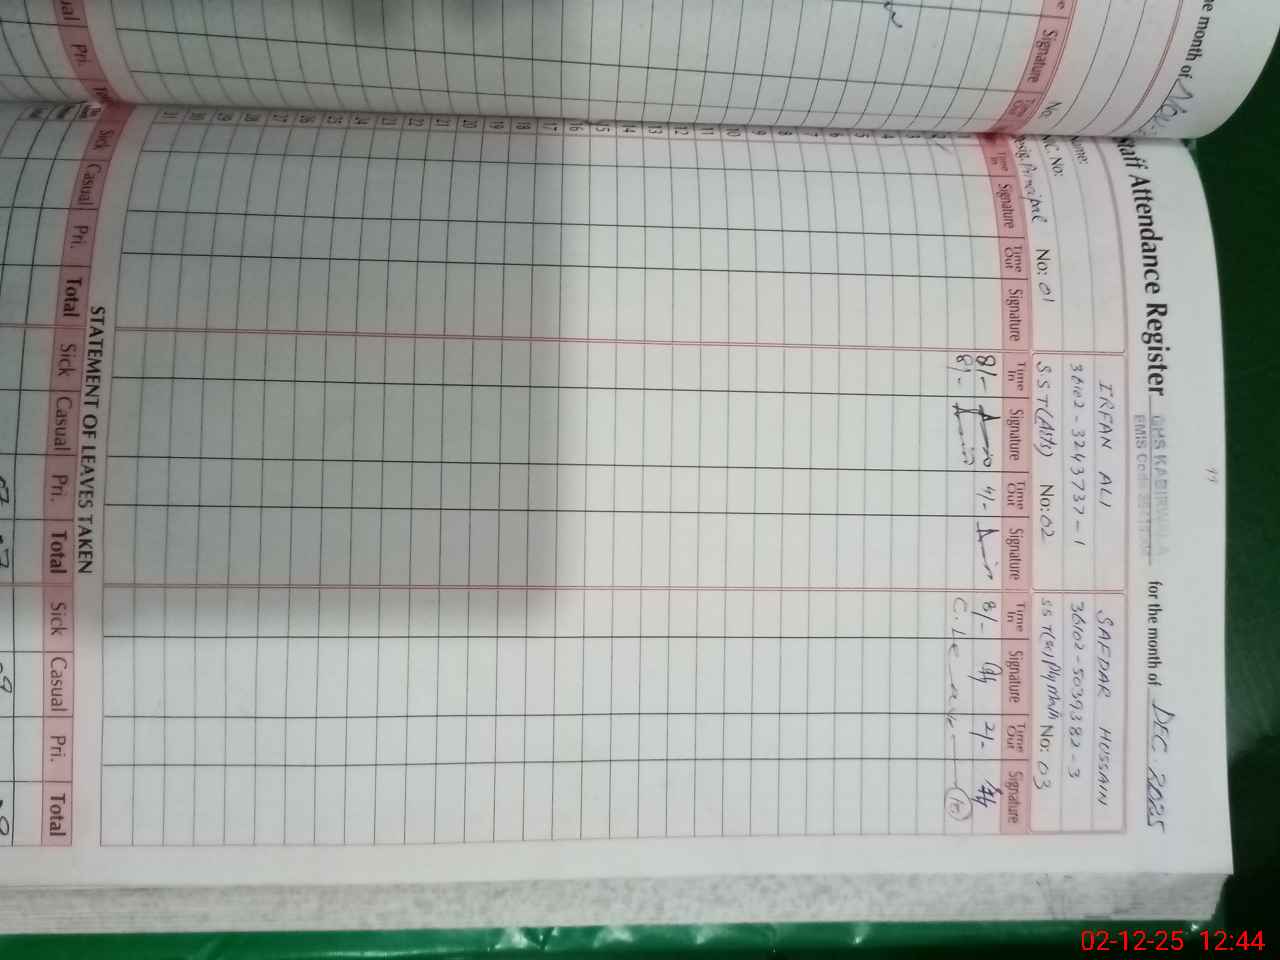 Staff Attendance Register GHS KABIRWALA for the month of DEC. 2025
EMIS Code
Name: IRFAN ALI SAFDAR HUSSAIN
N.I.C. No: 36102-3243737-1 36102-5039382-3
Desig. Principal No: 01 SST(Arts) No: 02 SST(Sc) Phy Math No: 03
Time In Signature Time Out Signature Time In Signature Time Out Signature Time In Signature Time Out Signature
8/- 4/- 8/- 2/-
8/- C. Leave
3
4
5
6
7
8
9
10
11
12
13
14
15
16
17
18
19
20
21
22
23
24
25
26
27
28
29
30
31
STATEMENT OF LEAVES TAKEN
Sick Casual Pri. Total Sick Casual Pri. Total Sick Casual Pri. Total
the month of
Signature
Pri.
02-12-25 12:44